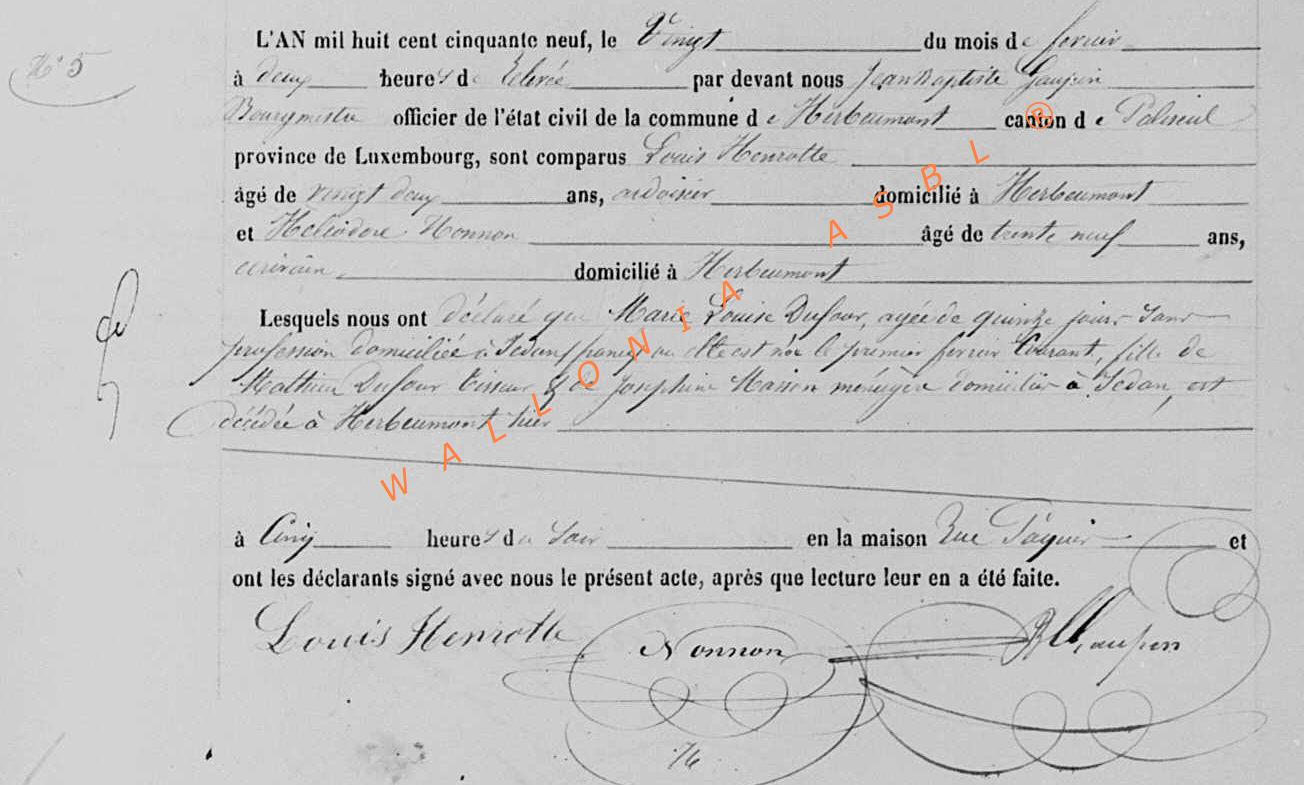 N° 5
L'AN mil huit cent cinquante neuf, le Vingt du mois de fevrier
à deux heures de relevée par devant nous Jean Baptiste Gaupin
Bourgmestre officier de l'état civil de la commune de Herbeumont canton de Paliseul
province de Luxembourg, sont comparus Louis Henrotte
âgé de vingt deux ans, ardoisier domicilié à Herbeumont
et Heliodore Nonnon âgé de trente neuf ans,
domicilié à Herbeumont
Lesquels nous ont déclaré que Marie Louise Dufour, agée de quinze jours sans
profession domiciliée à Sedan où elle est née le premier fevrier Courant, fille de
Mathieu Dufour Tisseur & de Josephine Masson menagère domiciliés à Sedan, est
décédée à Herbeumont hier
à Cinq heures du Soir en la maison Rue et
ont les déclarants signé avec nous le présent acte, après que lecture leur en a été faite.
Louis Henrotte Nonnon JB Gaupin
WALLONIA ASBL ®